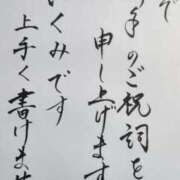 で
年のご祝詞を
申し上げます
いくみです
上手く書けま